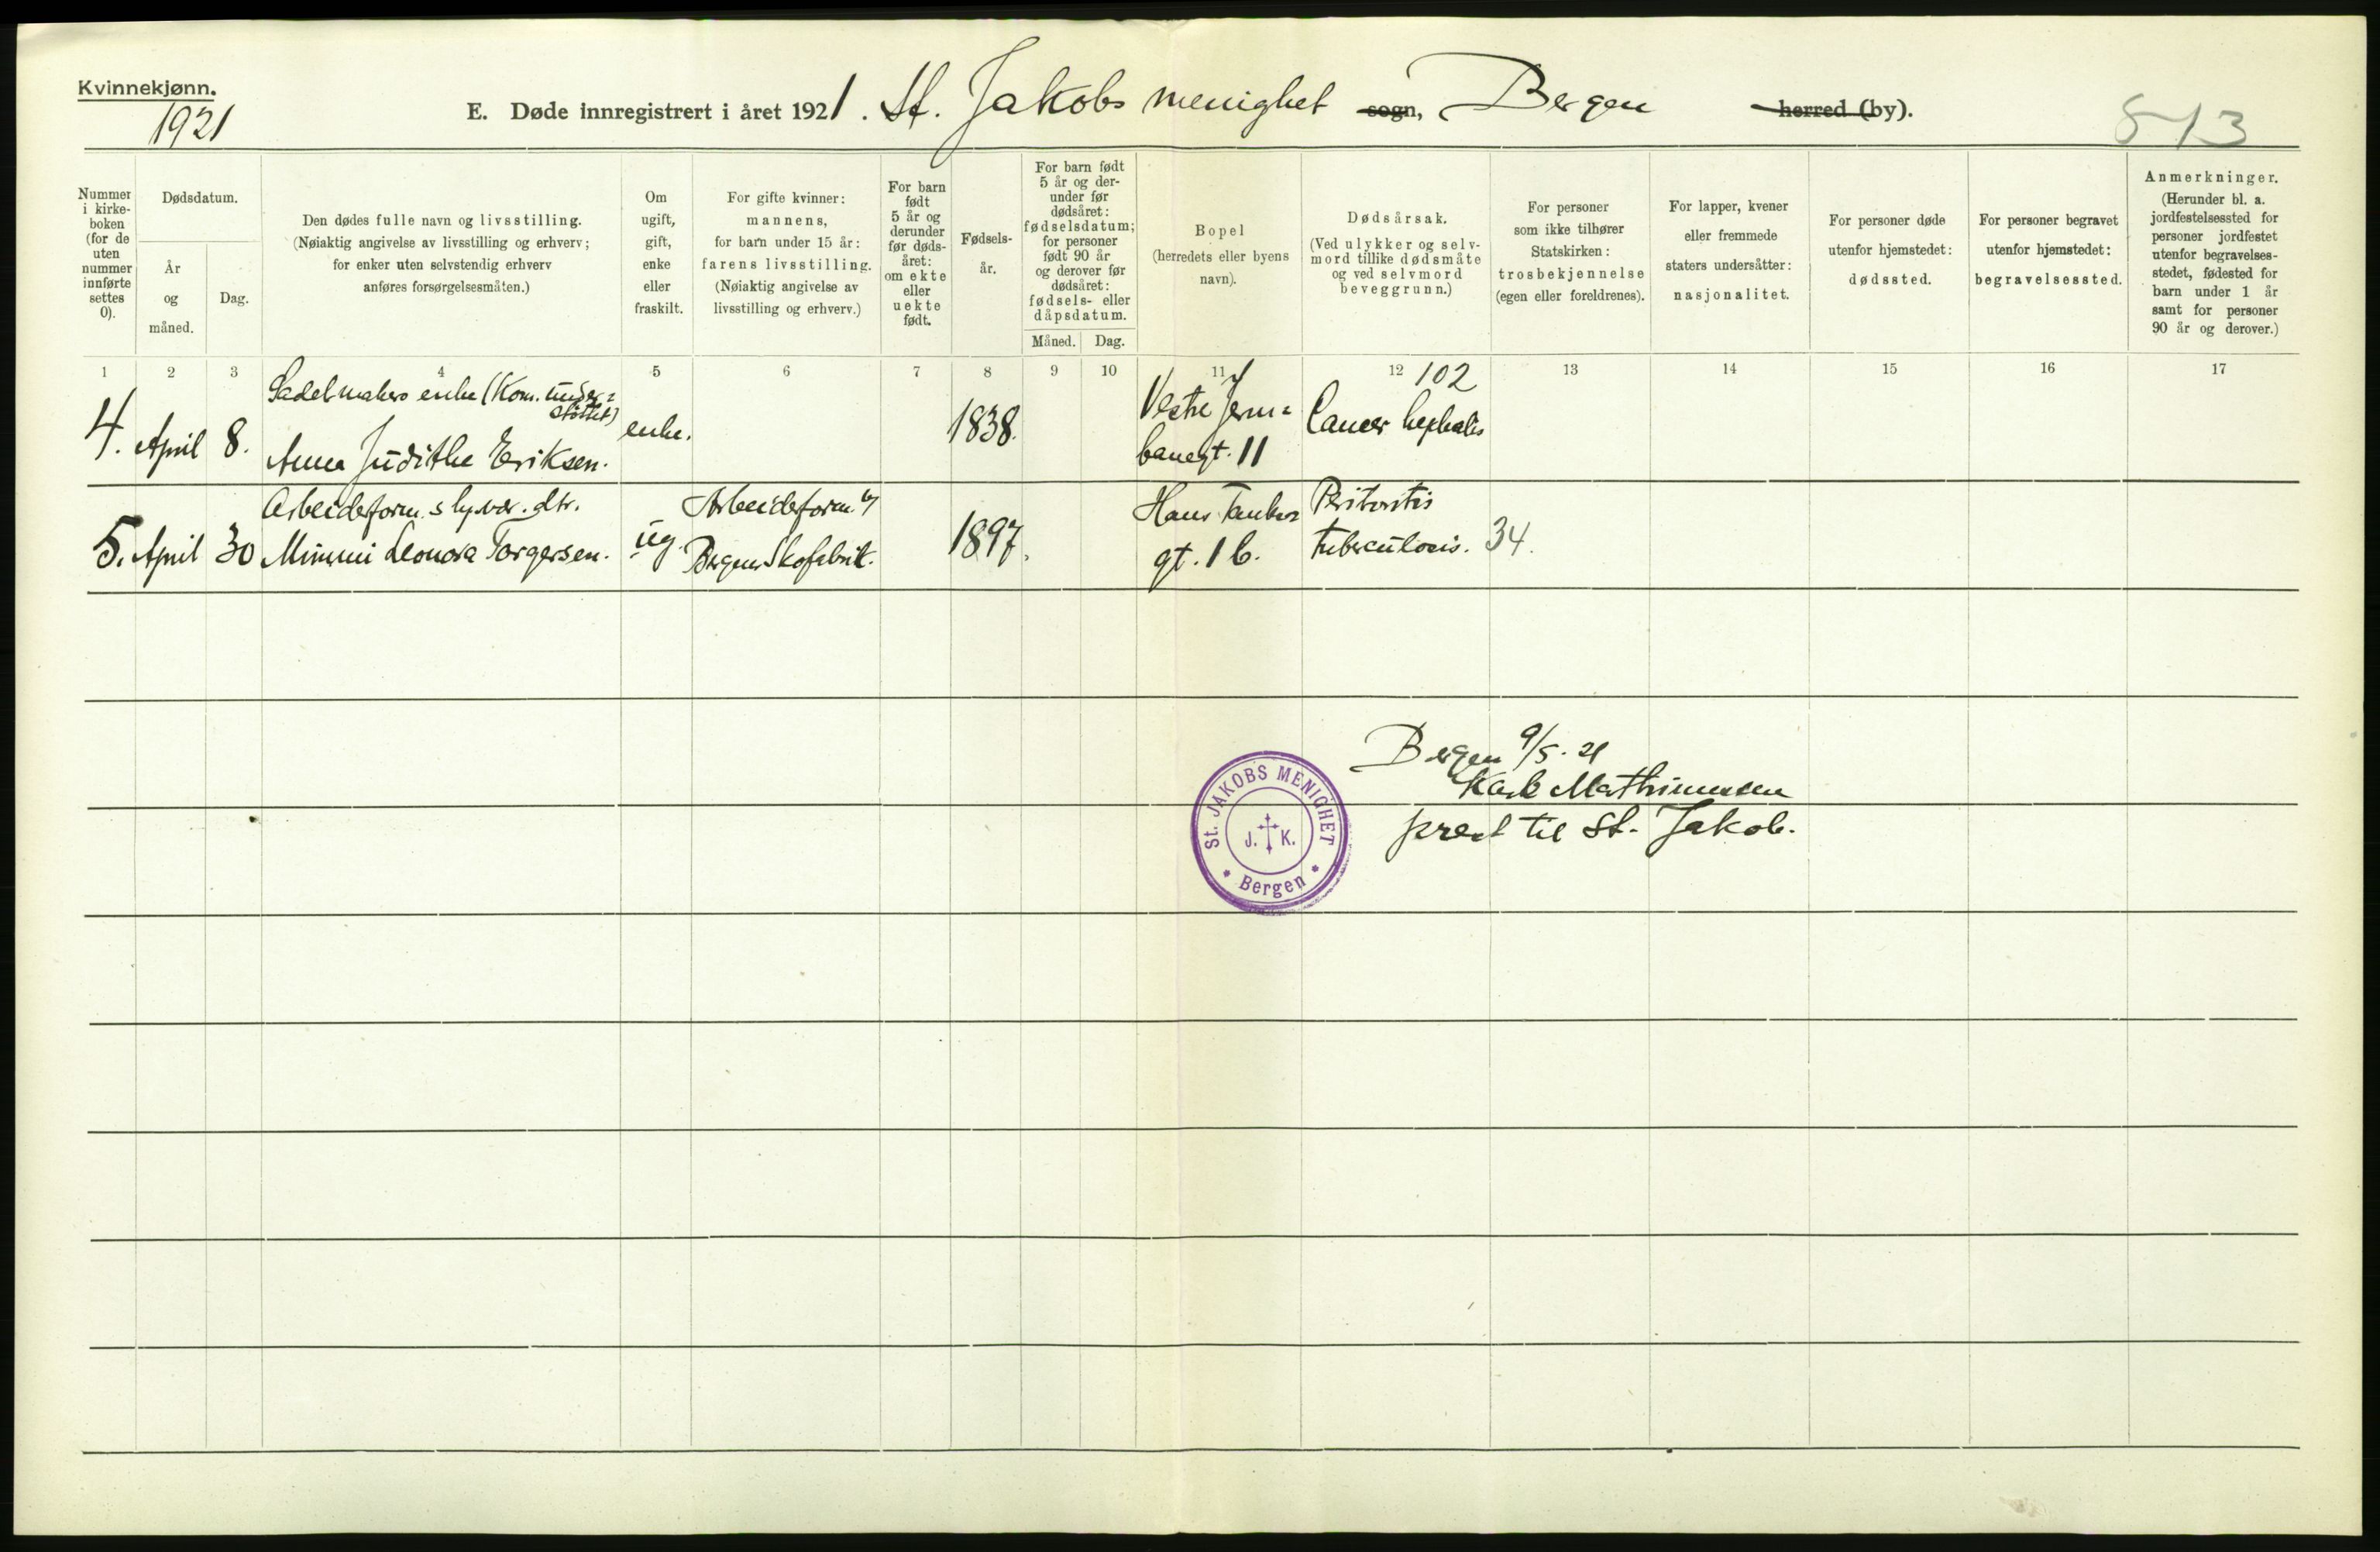 Kvinnekjønn.
1921
E. Døde innregistrert i året 1921. St. Jakobs menighet sogn, Bergen herred (by).
513
Nummer
i kirke-
boken
(for de
uten
nummer
innførte
settes
0).
Dødsdatum.
År
og
måned.
Dag.
Den dødes fulle navn og livsstilling.
(Nøiaktig angivelse av livsstilling og erhverv;
for enker uten selvstendig erhverv
anføres forsørgelsesmåten.)
Om
ugift,
gift,
enke
eller
fraskilt.
For gifte kvinner:
mannens,
for barn under 15 år:
farens livsstilling.
(Nøiaktig angivelse av
livsstilling og erhverv.)
For barn
født
5 år og
derunder
før døds-
året:
om ekte
eller
uekte
født.
Fødsels-
år.
For barn født
5 år og der-
under før
dødsåret:
fødselsdatum;
for personer
født 90 år
og derover før
dødsåret:
fødsels- eller
dåpsdatum.
Måned. Dag.
Bopel
(herredets eller byens
navn).
Dødsårsak.
(Ved ulykker og selv-
mord tillike dødsmåte
og ved selvmord
beveggrunn.)
For personer
som ikke tilhører
Statskirken:
trosbekjennelse
(egen eller foreldrenes).
For lapper, kvener
eller fremmede
staters undersåtter:
nasjonalitet.
For personer døde
utenfor hjemstedet:
dødssted.
For personer begravet
utenfor hjemstedet:
begravelsessted.
Anmerkninger.
(Herunder bl. a.
jordfestelsessted for
personer jordfestet
utenfor begravelses-
stedet, fødested for
barn under 1 år
samt for personer
90 år og derover.)
1 2 3 4 5 6 7 8 9 10 11 12 13 14 15 16 17
4. April 8.
Sadelmakers enke (Kom. under=
støttet)
Anna Judithe Eriksen.
enke.
1838.
Vestre Jern=
banegt. 11
102
Cancer hephatis
5. April 30
Arbeidsform.s hjv. dtr.
Mimmi Leonora Torgersen.
ug.
Arbeidsform. v/
Bergens Skofabrik.
1897.
Hans Tanks=
gt. 1 b.
Peritonitis
tuberculosis. 34.
Bergen 9/5. 21
Karl Mathiesen
prest til St. Jakob.
St. JAKOBS MENIGHET
J. K.
* Bergen *